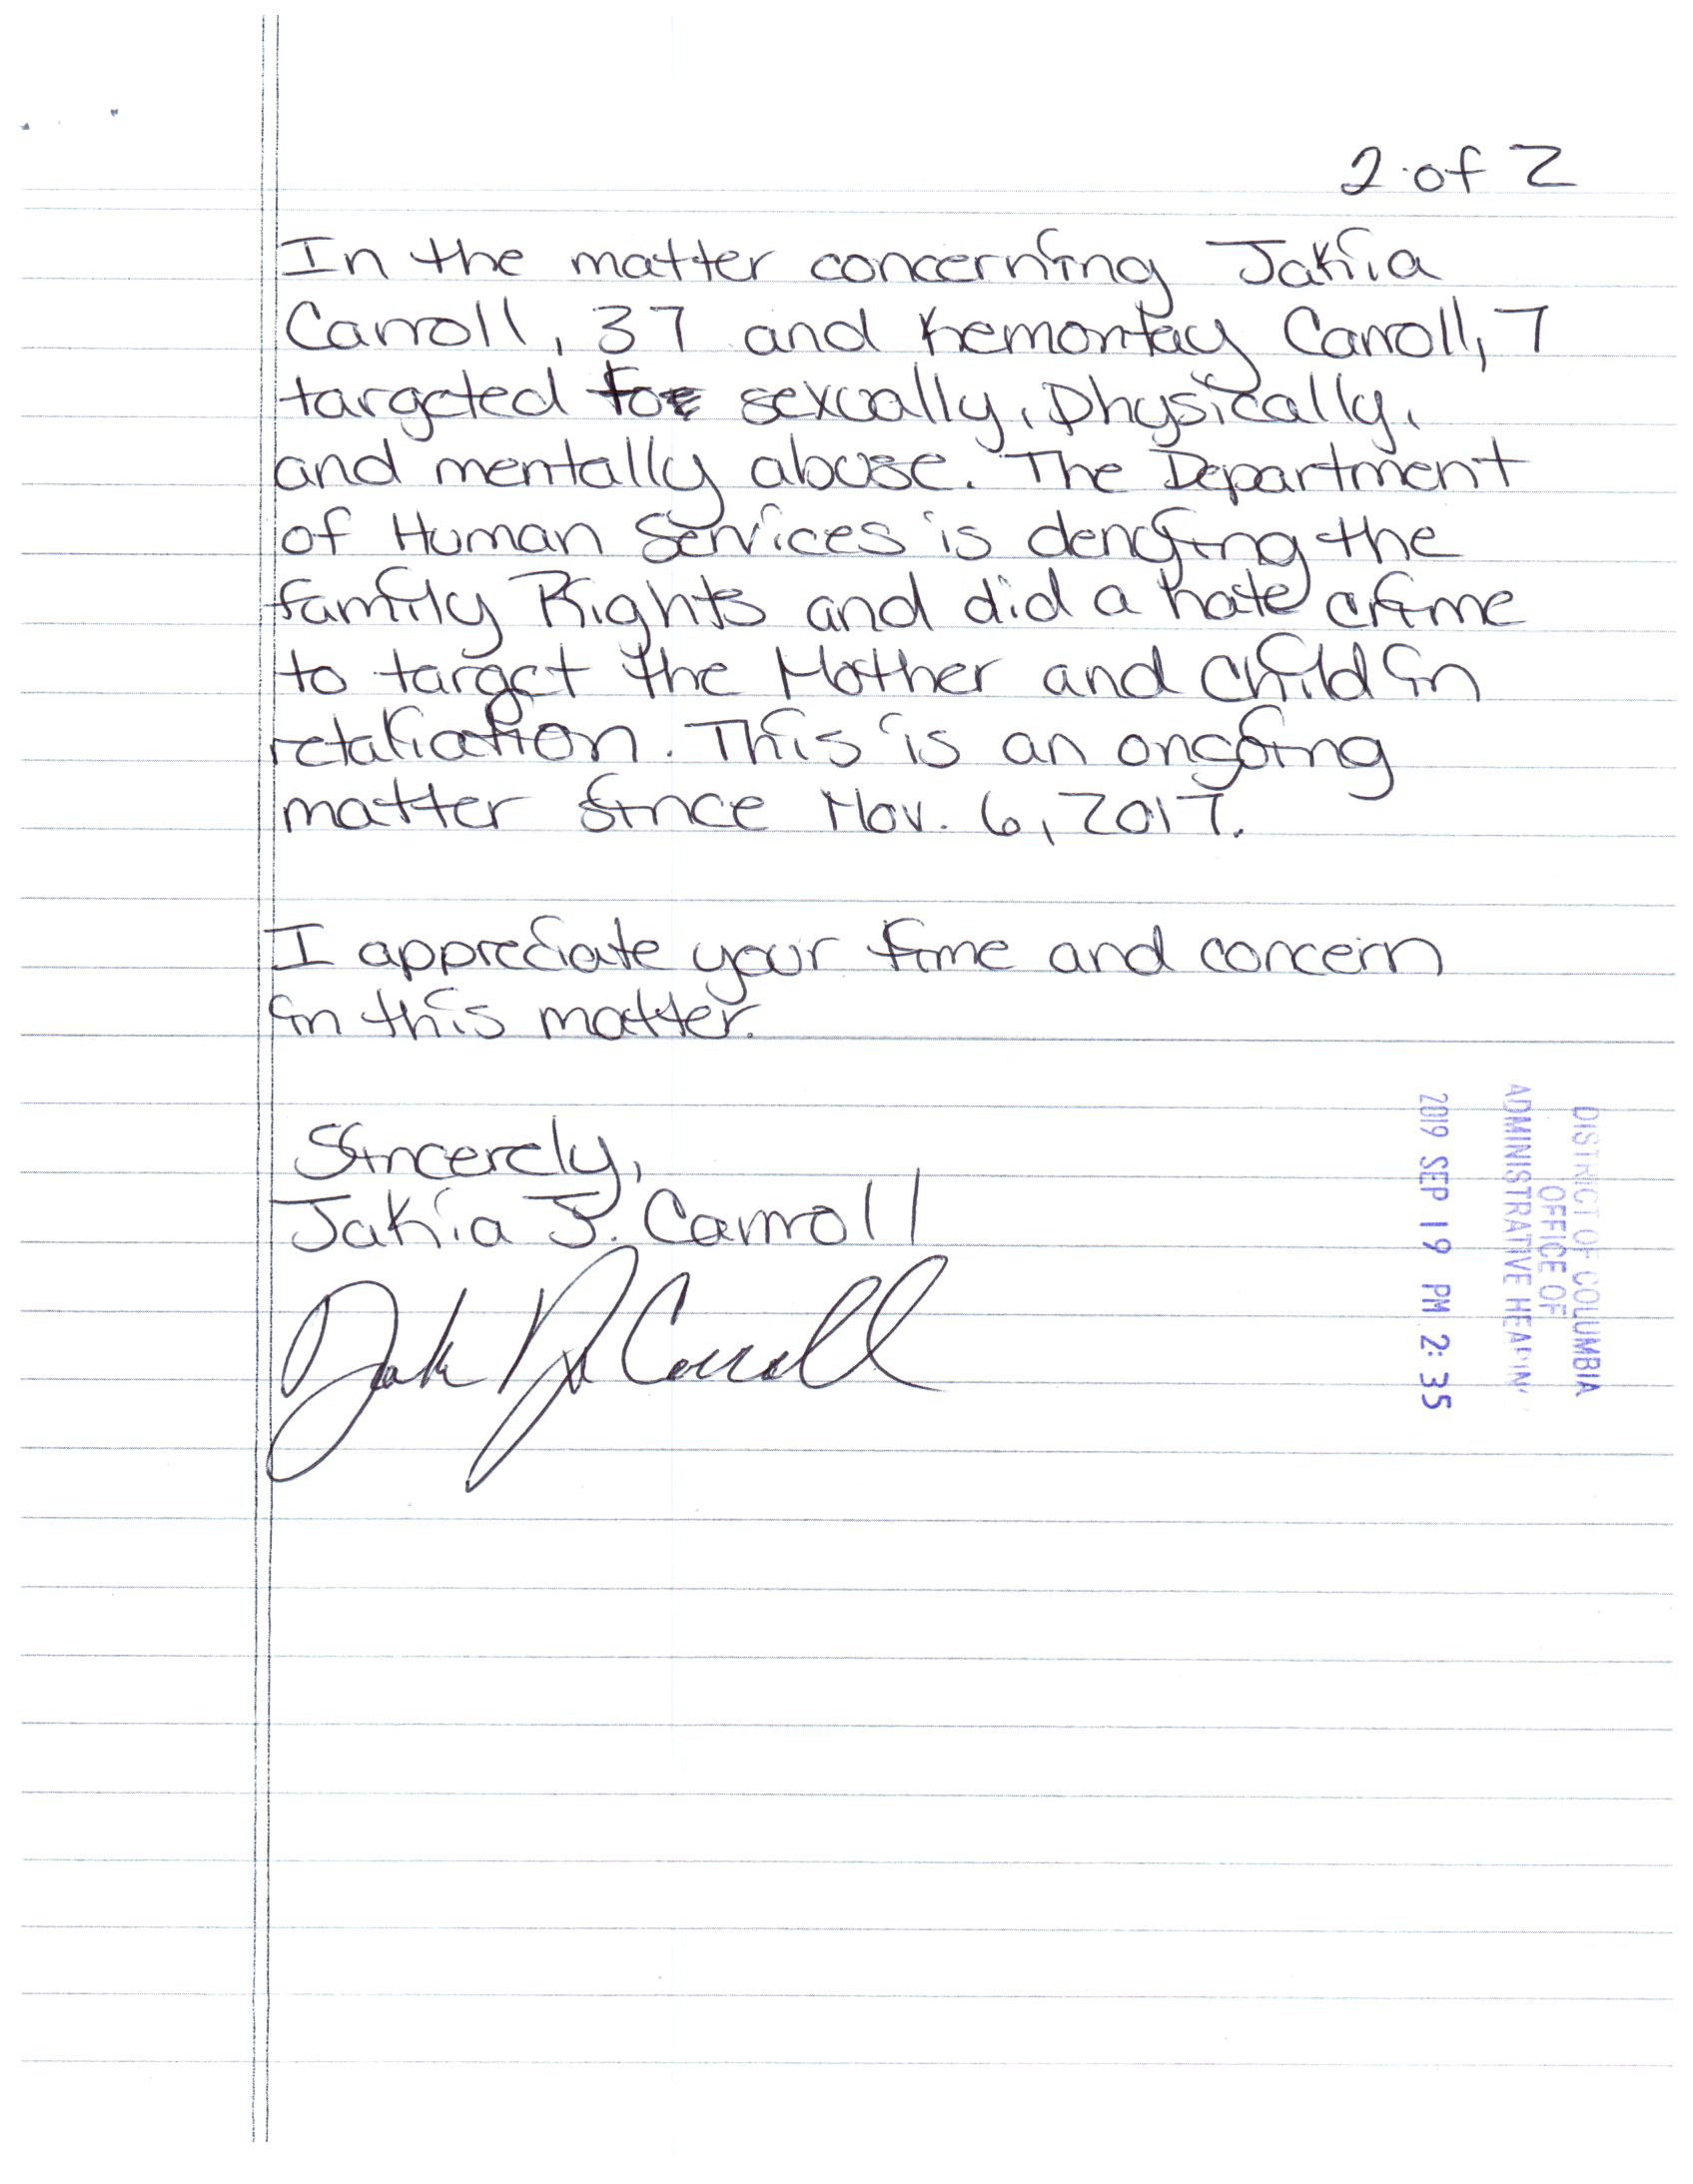 2 of 2
In the matter concerning Jakia
Carroll, 37 and Kemontay Carroll, 7
targeted for sexually, physically,
and mentally abuse. The Department
of Human Services is denying the
family Rights and did a hate crime
to target the Mother and Child in
retaliation. This is an ongoing
matter since Nov. 6, 2017.
I appreciate your time and concern
in this matter.
Sincerely,
Jakia J. Carroll
DISTRICT OF COLUMBIA
OFFICE OF
ADMINISTRATIVE HEARIN
2019 SEP 19 PM 2:35